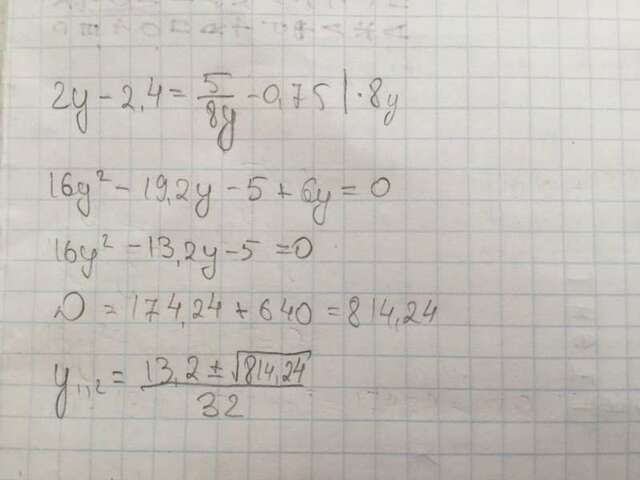 2y - 2,4 = 5/8y - 0,75 | · 8y
16y² - 19,2y - 5 + 6y = 0
16y² - 13,2y - 5 = 0
D = 174,24 + 640 = 814,24
y₁,₂ = (13,2 ± √814,24)/32